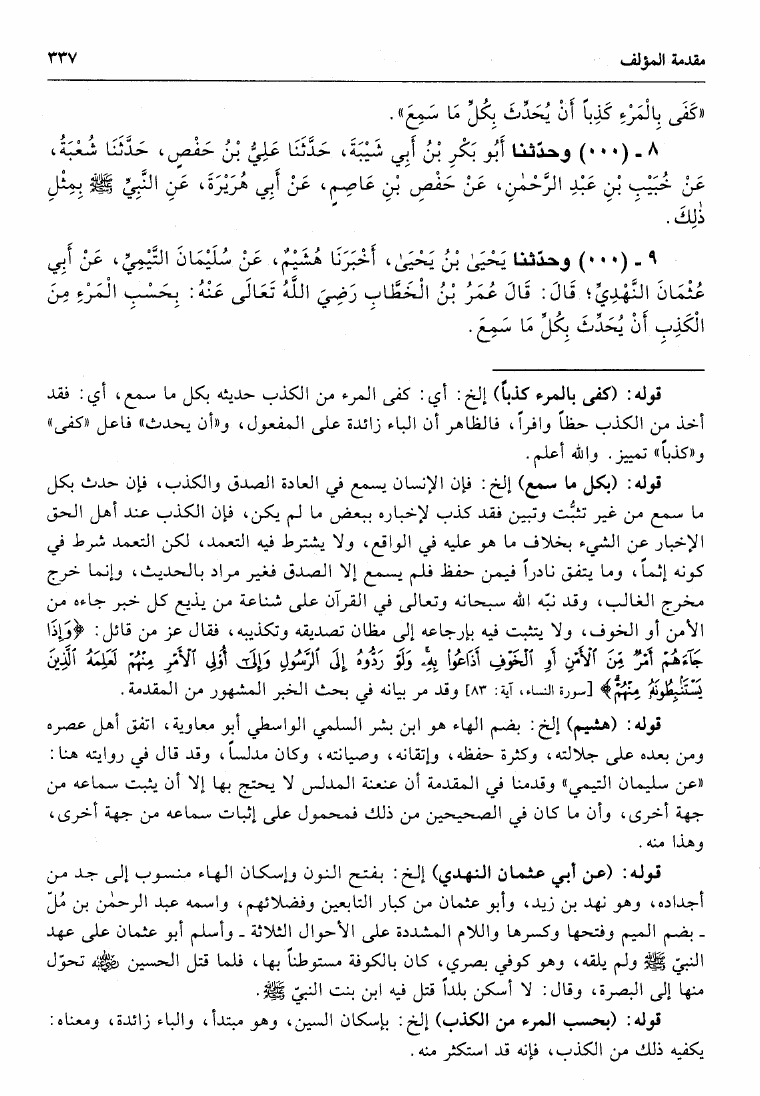 مقدمة المؤلف ٣٣٧
«كَفَى بِالْمَرْءِ كَذِباً أَنْ يُحَدِّثَ بِكُلِّ مَا سَمِعَ».
٨ ـ (٠٠٠) وحدّثنا أَبُو بَكْرِ بْنُ أَبِي شَيْبَةَ، حَدَّثَنَا عَلِيُّ بْنُ حَفْصٍ، حَدَّثَنَا شُعْبَةُ،
عَنْ خُبَيْبِ بْنِ عَبْدِ الرَّحْمٰنِ، عَنْ حَفْصِ بْنِ عَاصِمٍ، عَنْ أَبِي هُرَيْرَةَ، عَنِ النَّبِيِّ ﷺ بِمِثْلِ
ذٰلِكَ.
٩ ـ (٠٠٠) وحدّثنا يَحْيَىٰ بْنُ يَحْيَىٰ، أَخْبَرَنَا هُشَيْمٌ، عَنْ سُلَيْمَانَ التَّيْمِيِّ، عَنْ أَبِي
عُثْمَانَ النَّهْدِيِّ؛ قَالَ: قَالَ عُمَرُ بْنُ الْخَطَّابِ رَضِيَ اللَّهُ تَعَالَى عَنْهُ: بِحَسْبِ الْمَرْءِ مِنَ
الْكَذِبِ أَنْ يُحَدِّثَ بِكُلِّ مَا سَمِعَ.
قوله: (كفى بالمرء كذباً) إلخ: أي: كفى المرء من الكذب حديثه بكل ما سمع، أي: فقد
أخذ من الكذب حظاً وافراً، فالظاهر أن الباء زائدة على المفعول، و«أن يحدث» فاعل «كفى»
و«كذباً» تمييز. والله أعلم.
قوله: (بكل ما سمع) إلخ: فإن الإنسان يسمع في العادة الصدق والكذب، فإن حدث بكل
ما سمع من غير تثبُّت وتبين فقد كذب لإخباره ببعض ما لم يكن، فإن الكذب عند أهل الحق
الإخبار عن الشيء بخلاف ما هو عليه في الواقع، ولا يشترط فيه التعمد، لكن التعمد شرط في
كونه إثماً، وما يتفق نادراً فيمن حفظ فلم يسمع إلا الصدق فغير مراد بالحديث، وإنما خرج
مخرج الغالب، وقد نبّه الله سبحانه وتعالى في القرآن على شناعة من يذيع كل خبر جاءه من
الأمن أو الخوف، ولا يتثبت فيه بإرجاعه إلى مظان تصديقه وتكذيبه، فقال عز من قائل: ﴿وَإِذَا
جَآءَهُمْ أَمْرٌ مِّنَ ٱلْأَمْنِ أَوِ ٱلْخَوْفِ أَذَاعُوا۟ بِهِۦ وَلَوْ رَدُّوهُ إِلَى ٱلرَّسُولِ وَإِلَىٰٓ أُو۟لِى ٱلْأَمْرِ مِنْهُمْ لَعَلِمَهُ ٱلَّذِينَ
يَسْتَنۢبِطُونَهُۥ مِنْهُمْ﴾ [سورة النساء، آية: ٨٣] وقد مر بيانه في بحث الخبر المشهور من المقدمة.
قوله: (هشيم) إلخ: بضم الهاء هو ابن بشر السلمي الواسطي أبو معاوية، اتفق أهل عصره
ومن بعده على جلالته، وكثرة حفظه، وإتقانه، وصيانته، وكان مدلساً، وقد قال في روايته هنا:
«عن سليمان التيمي» وقدمنا في المقدمة أن عنعنة المدلس لا يحتج بها إلا أن يثبت سماعه من
جهة أخرى، وأن ما كان في الصحيحين من ذلك فمحمول على إثبات سماعه من جهة أخرى،
وهذا منه.
قوله: (عن أبي عثمان النهدي) إلخ: بفتح النون وإسكان الهاء منسوب إلى جد من
أجداده، وهو نهد بن زيد، وأبو عثمان من كبار التابعين وفضلائهم، واسمه عبد الرحمٰن بن مُلّ
ـ بضم الميم وفتحها وكسرها واللام المشددة على الأحوال الثلاثة ـ وأسلم أبو عثمان على عهد
النبيّ ﷺ ولم يلقه، وهو كوفي بصري، كان بالكوفة مستوطناً بها، فلما قتل الحسين رضي الله عنه تحوّل
منها إلى البصرة، وقال: لا أسكن بلداً قتل فيه ابن بنت النبيّ ﷺ.
قوله: (بحسب المرء من الكذب) إلخ: بإسكان السين، وهو مبتدأ، والباء زائدة، ومعناه:
يكفيه ذلك من الكذب، فإنه قد استكثر منه.